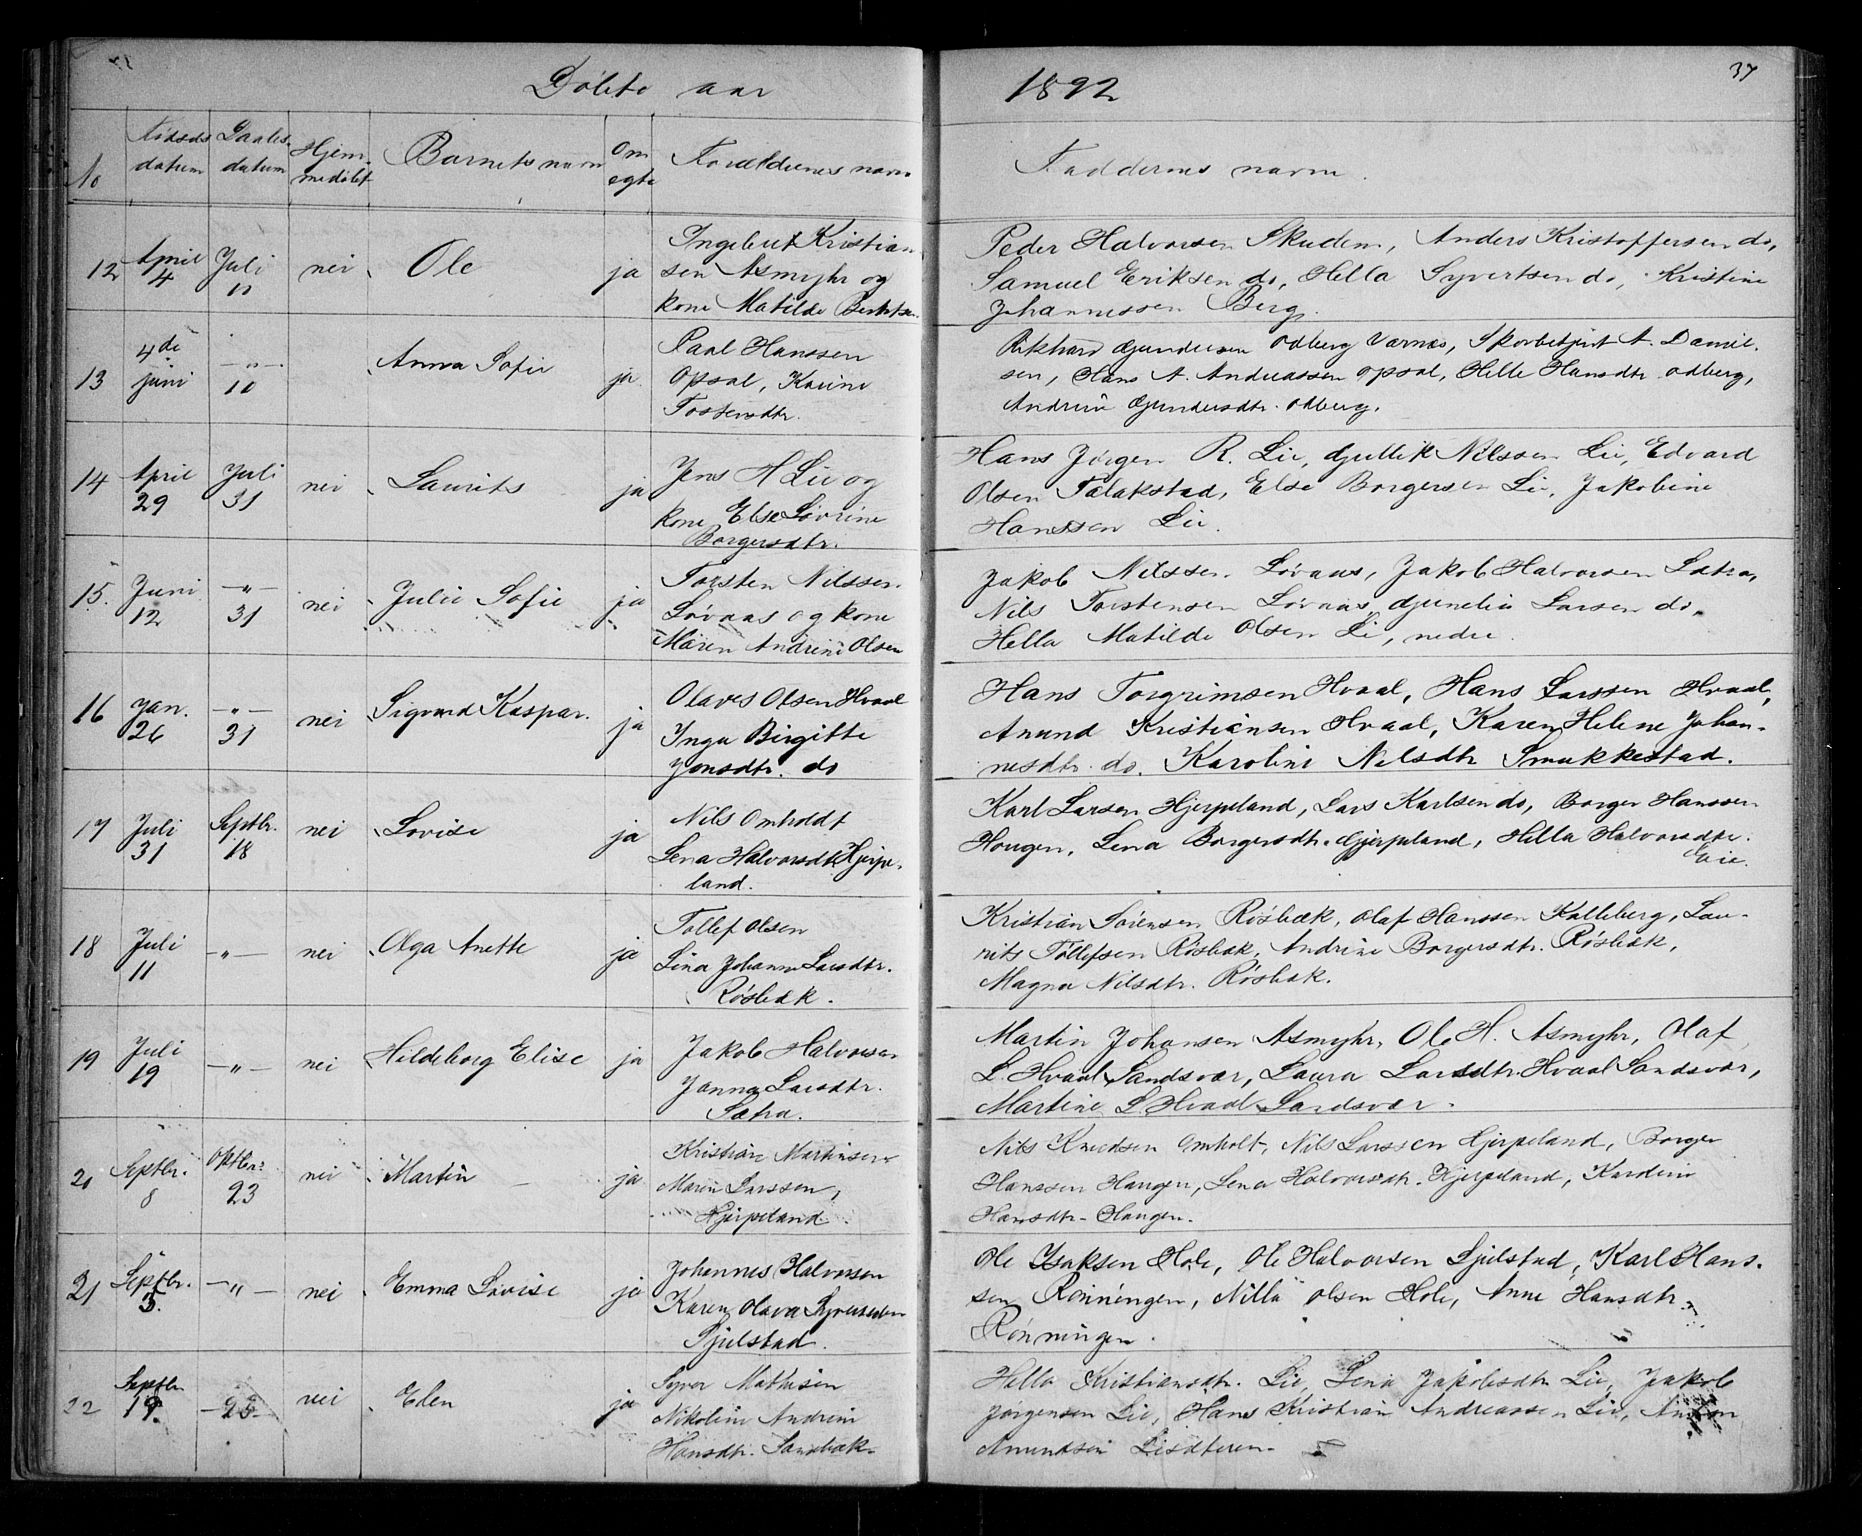 Döbte aar 1892
37
No Födsels datum Daabs datum Hjemme döbt Barnets navn Om egte Forældrenes navn Faddernes navn.
12 April 4 Juli 10 nei Ole ja
Ingebret Kristian
sen Asmyhr og
kone Matilde Berntsen.
Peder Halvorsen Skuden, Anders Kristoffersen do,
Samuel Eriksen do, Hella Syvertsen do, Kristine
Johannessen Berg.
13 4de juni —„— 10 Anna Sofie ja.
Paul Hanssen
Opsal, Karine
Tostensdtr.
Rikhard Gundersen Odberg Varnæs, Skorbetjent A. Daniel.
sen, Hans A. Andreassen Opsal, Helle Hansdtr Odberg,
Andrine Gundersdtr. Odberg.
14 April 29 Juli 31 nei Laurits ja
Jens H Lie og
kone Else Lovrine
Borgersdtr.
Hans Jörgen R. Lie, Gullik Nilssen Lie, Edvard
Olsen Talakstad, Else Borgersen Lie, Jakobine
Hanssen Lie.
15. Juni 12 —„— 31 nei Julie Sofie ja
Torsten Nilssen
Lövaas og kone
Maren Andrine Olsen
Jakob Nilssen Lövaas, Jakob Halvorsen Sætra,
Nils Torstensen Lövaas, Gunelia Larsen do.
Hella Matilde Olsen Li, nedre.
16 Jan. 26 —„— 31 nei Sigvard Kaspar. ja
Olaves Olsen Hvaal
Inga Birgitte
Jensdtr. do
Hans Torgrimsen Hvaal, Hans Larssen Hvaal,
Anund Kristiansen Hvaal, Karen Helene Johan-
nesdtr. do. Karoline Nilsdtr Smukkestad.
17 Juli 31 Septbr. 18 nei Lovise ja
Nils Omholdt
Lena Halvorsdtr. Hjerpe-
land.
Karl Larsen Hjerpeland, Lars Karlsen do, Borger Hanssen
Hougen, Lena Borgersdtr. Hjerpeland, Hella Halvorsdtr.
Evie.
18 Juli 11 —„— nei Olga Anette ja
Tollef Olsen
Lina Johanne Larsdtr.
Rösbæk.
Kristian Sörensen Rösbæk, Olaf Hanssen Kalleberg, Lau-
rits Tollefsen Rösbæk, Andrine Borgersdtr. Rösbæk,
Magna Nilsdtr. Rösbæk.
19 Juli 19 —„— nei Hildeborg Elise ja
Jakob Halvorsen
Janna Larsdtr.
Sætra.
Martin Johansen Asmyhr, Ole H. Asmyhr, Olaf
L. Hvaal Sandsvær, Laura Larsdtr. Hvaal Sandsvær,
Martine L Hvaal Sandsvær.
20 Septbr. 8 Oktbr. 23 nei Martin ja
Kristian Martinsen
Maren Larssen,
Hjerpeland.
Nils Knudsen Omholt, Nils Larssen Hjerpeland, Borger
Hanssen Haugen, Lena Halvorsdtr. Hjerpeland, Karoline
Hansdtr. Haugen.
21 Septbr. 3. —„— nei Emma Lovise ja
Johannes Halvorsen
Karen Olava Syversdtr
Sjulstad.
Ole Isaksen Hole, Ole Halvorsen Sjulstad, Karl Hans.
sen Rönningen, Nilla Olsen Hole, Anne Hansdtr.
Rönningen.
22 Septbr 19. —25— nei Elen ja
Syver Mathisen
Nikoline Andrine
Hansdtr. Sandbæk.
Hella Kristiansdtr. Lie, Lena Jakobsdtr Lie, Jakob
Jörgensen Lie, Hans Kristian Andreassen Lie, Anton
Amundsen Lisæteren.